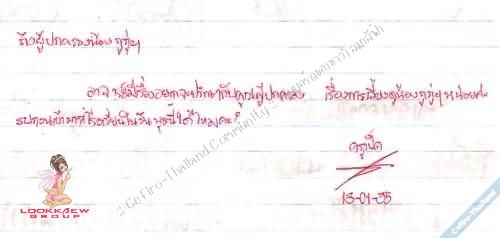 ถึงผู้ปกครองน้องกุ๊กๆ
อาจารย์มีเรื่องอยากจะปรึกษากับคุณผู้ปกครอง เรื่องการเลี้ยงดูน้องกุ๊กๆ หน่อยค่ะ
รบกวนเข้ามาที่โรงเรียนในวันพุธนี้ได้ไหมคะ?
ครูเป็ด
13-01-35
LOOKKAEW
GROUP
Cefiro-Thailand Community
Cefiro-Thailand